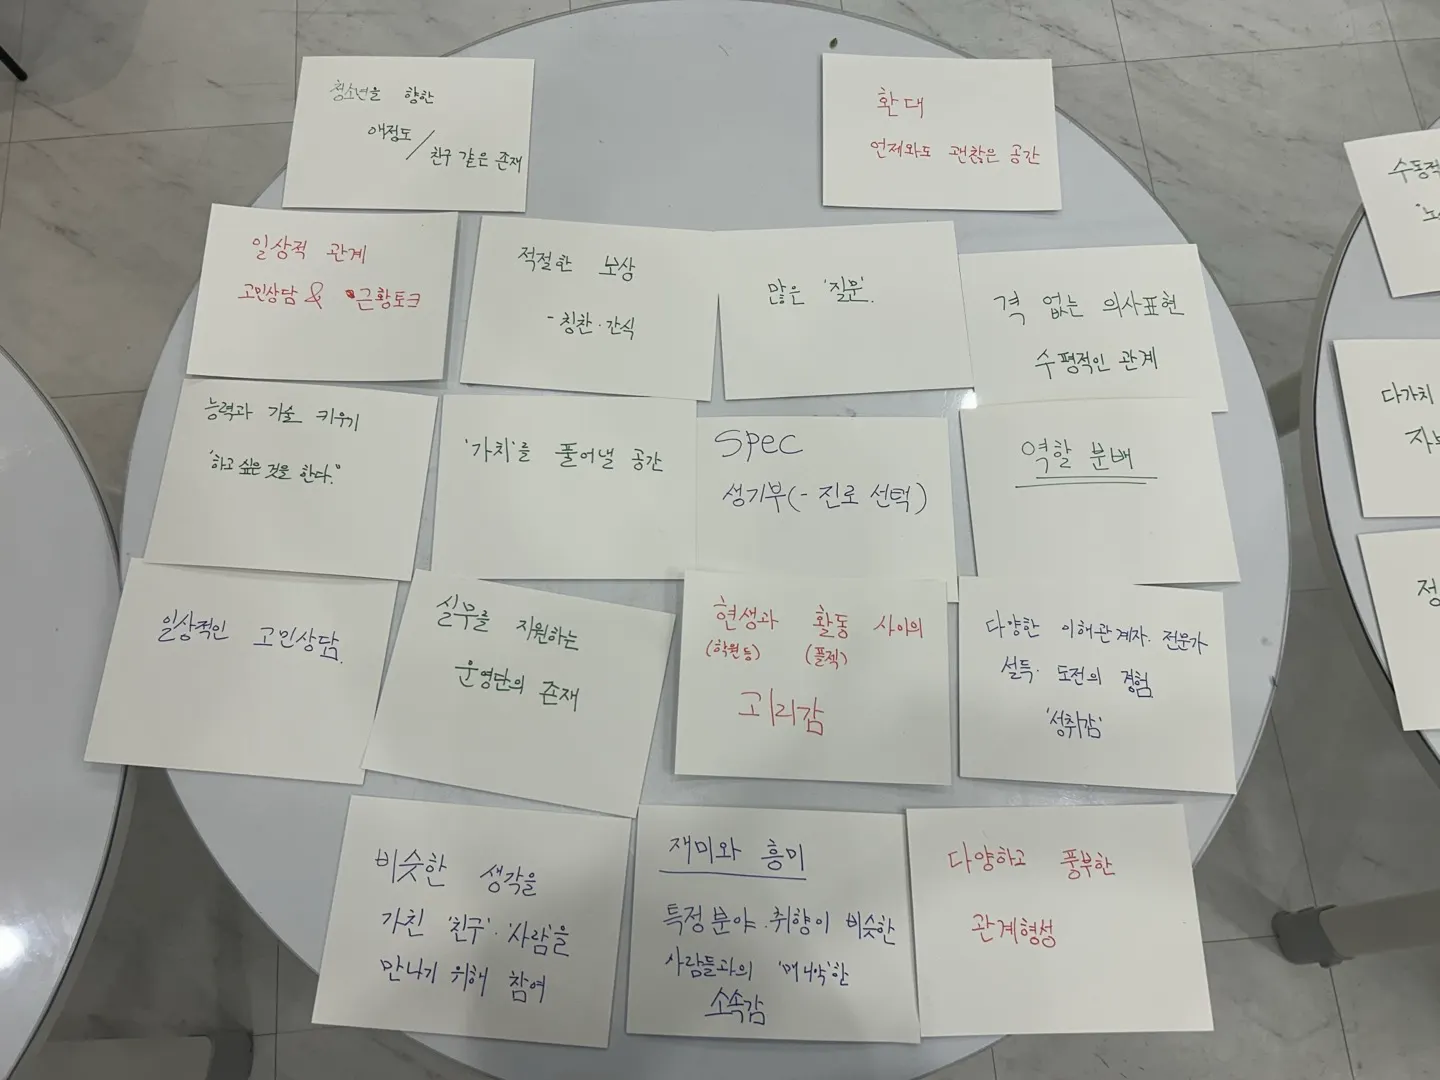 청소년을 향한
애정도 / 친구 같은 존재
환대
언제와도 괜찮은 공간
일상적 관계
고민상담 & 근황토크
적절한 보상
- 칭찬·간식
많은 '질문'.
격 없는 의사표현
수평적인 관계
능력과 기술 키우기
'하고 싶은 것을 한다."
'가치'를 풀어낼 공간
SPEC
성기부(- 진로 선택)
역할 분배
일상적인 고민상담.
실무를 지원하는
운영단의 존재
현생과 활동 사이의
(학원 등) (플젝)
괴리감
다양한 이해관계자·전문가
설득·도전의 경험
'성취감'
비슷한 생각을
가친 '친구'·'사람'을
만나기 위해 참여
재미와 흥미
특정 분야·취향이 비슷한
사람들과의 '매니악'한
소속감
다양하고 풍부한
관계형성
수동적
다가치
정